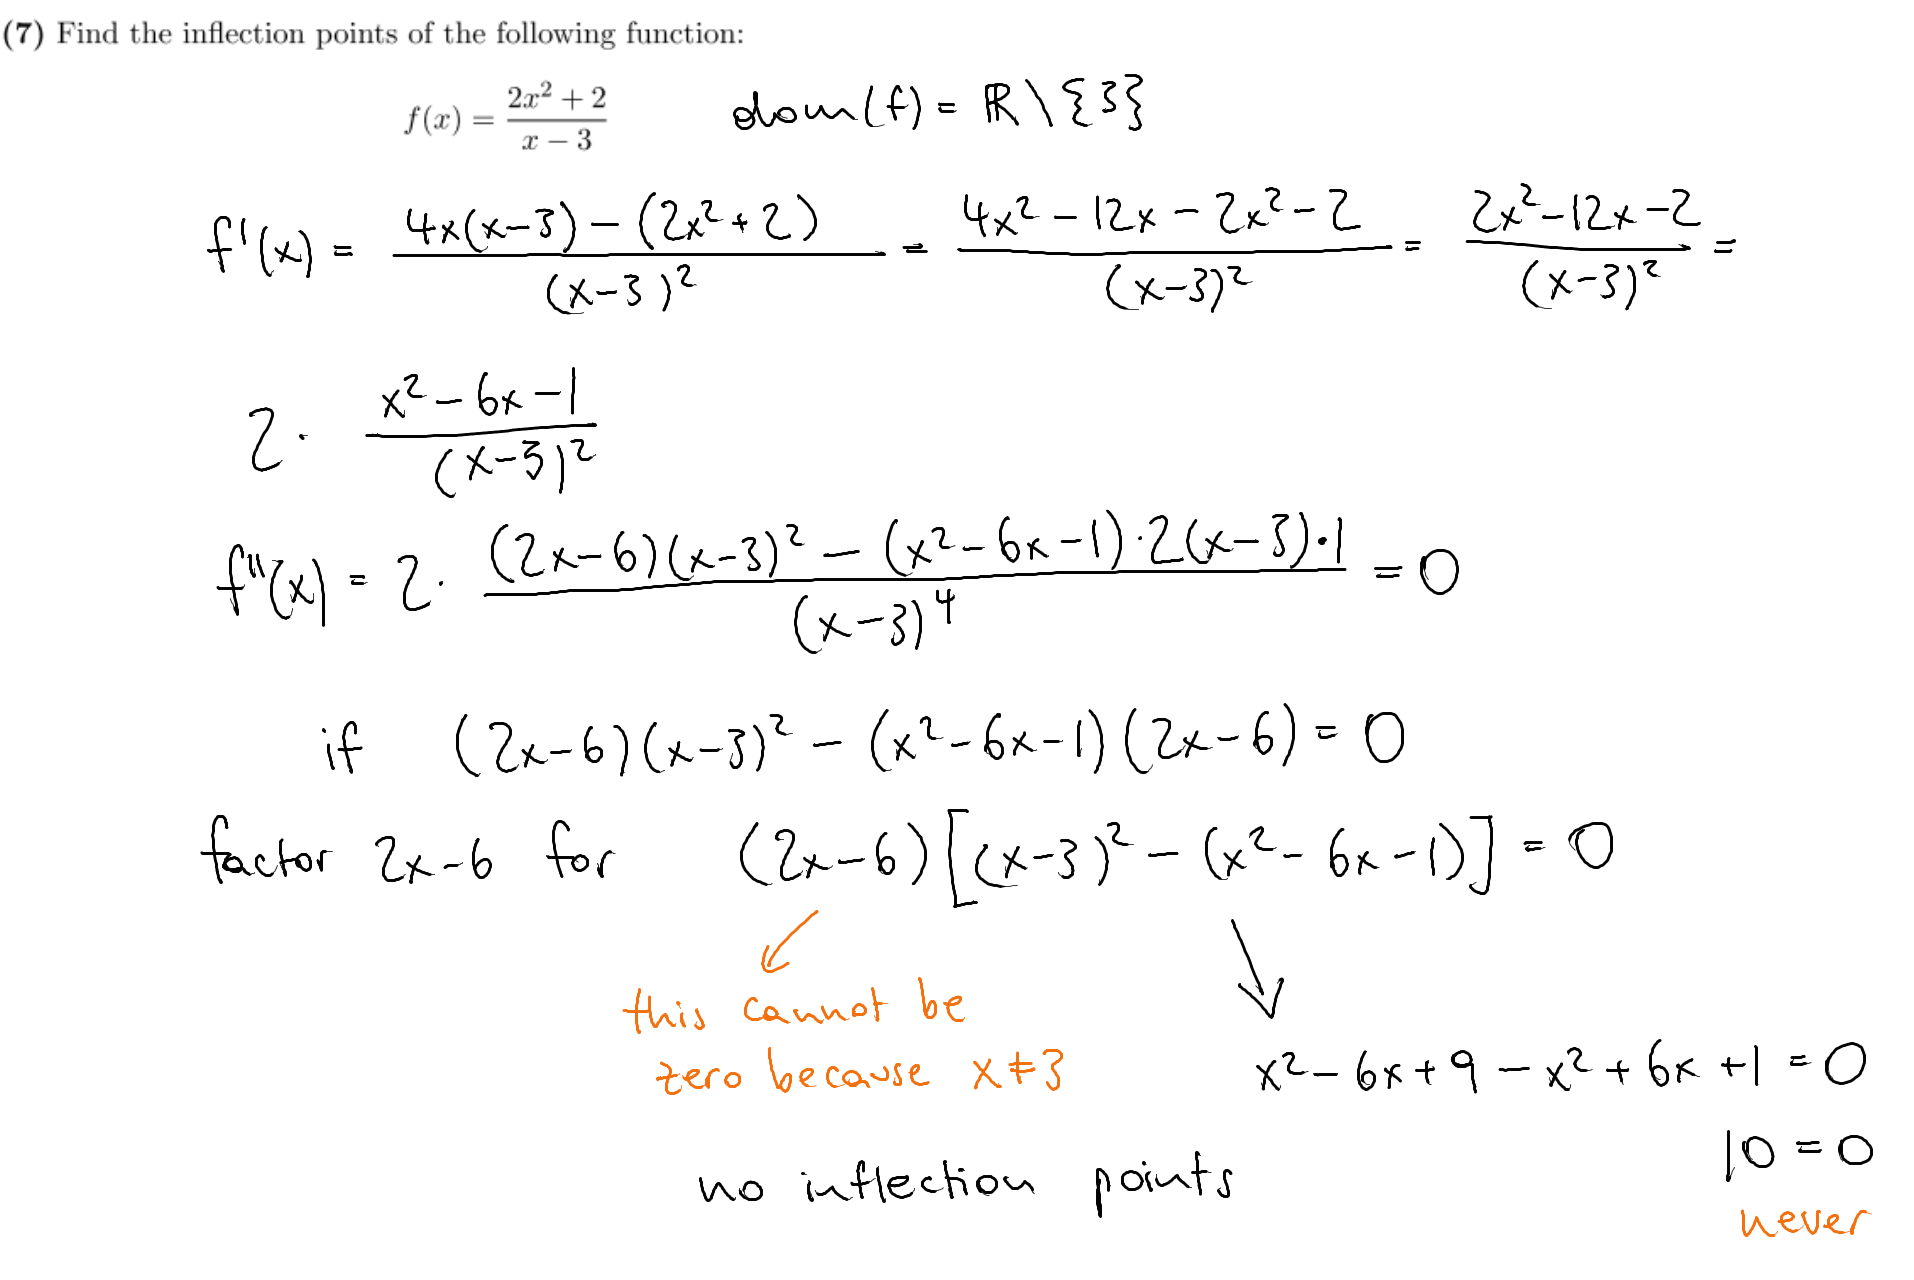 (7) Find the inflection points of the following function:
f(x) = (2x² + 2)/(x − 3)    dom(f) = ℝ \ {3}
f'(x) = (4x(x−3) − (2x²+2))/(x−3)² = (4x² − 12x − 2x² − 2)/(x−3)² = (2x² − 12x − 2)/(x−3)² =
2 · (x² − 6x − 1)/(x−3)²
f''(x) = 2 · ((2x−6)(x−3)² − (x² − 6x − 1) · 2(x−3) · 1)/(x−3)⁴ = 0
if (2x−6)(x−3)² − (x² − 6x − 1)(2x−6) = 0
factor 2x−6 for (2x−6)[(x−3)² − (x² − 6x − 1)] = 0
this cannot be
zero because x ≠ 3
x² − 6x + 9 − x² + 6x + 1 = 0
10 = 0
never
no inflection points